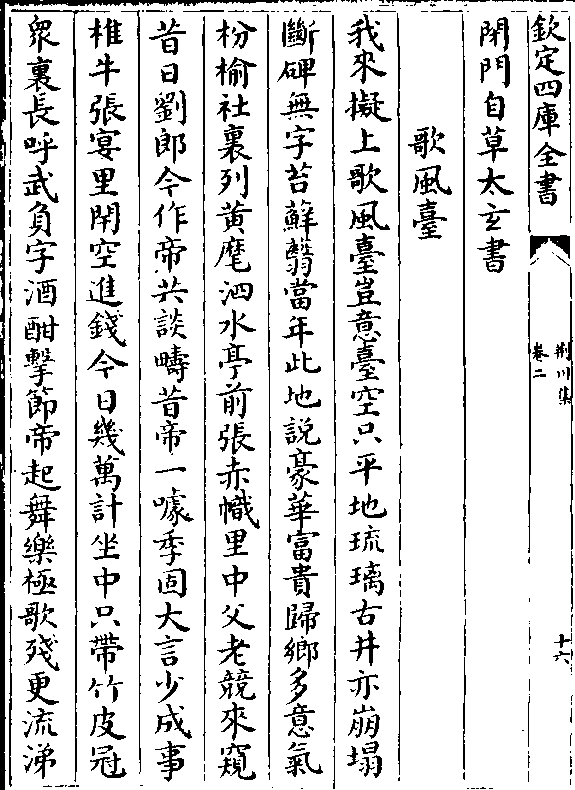 欽定四庫全書
荆川集
卷二
十六
閉門自草太玄書
歌風臺
我來擬上歌風臺豈意臺空只平地琉璃古井亦崩塌
斷碑無字苔蘚翳當年此地説豪華富貴歸鄉多意氣
枌榆社裏列黄麾泗水亭前張赤幟里中父老競來窺
昔日劉郎今作帝共談疇昔帝一噱季固大言少成事
椎牛張宴里閈空進錢今日幾萬計坐中只帶竹皮冠
衆裏長呼武負字酒酣擊節帝起舞樂極歌殘更流涕